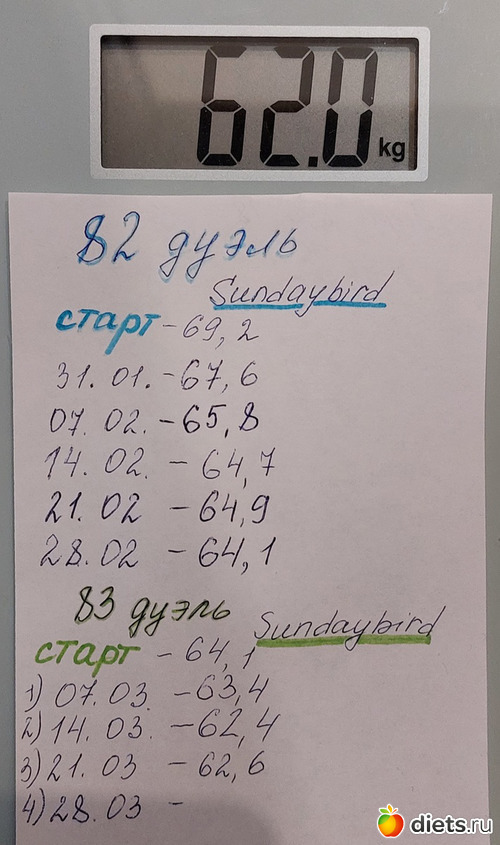 62.0 kg
82 дуэль
Sundaybird
старт - 69,2
31.01. - 67,6
07.02. - 65,8
14.02. - 64,7
21.02 - 64,9
28.02 - 64,1
83 дуэль
Sundaybird
старт - 64,1
1) 07.03. - 63,4
2) 14.03. - 62,4
3) 21.03 - 62,6
4) 28.03 -
diets.ru